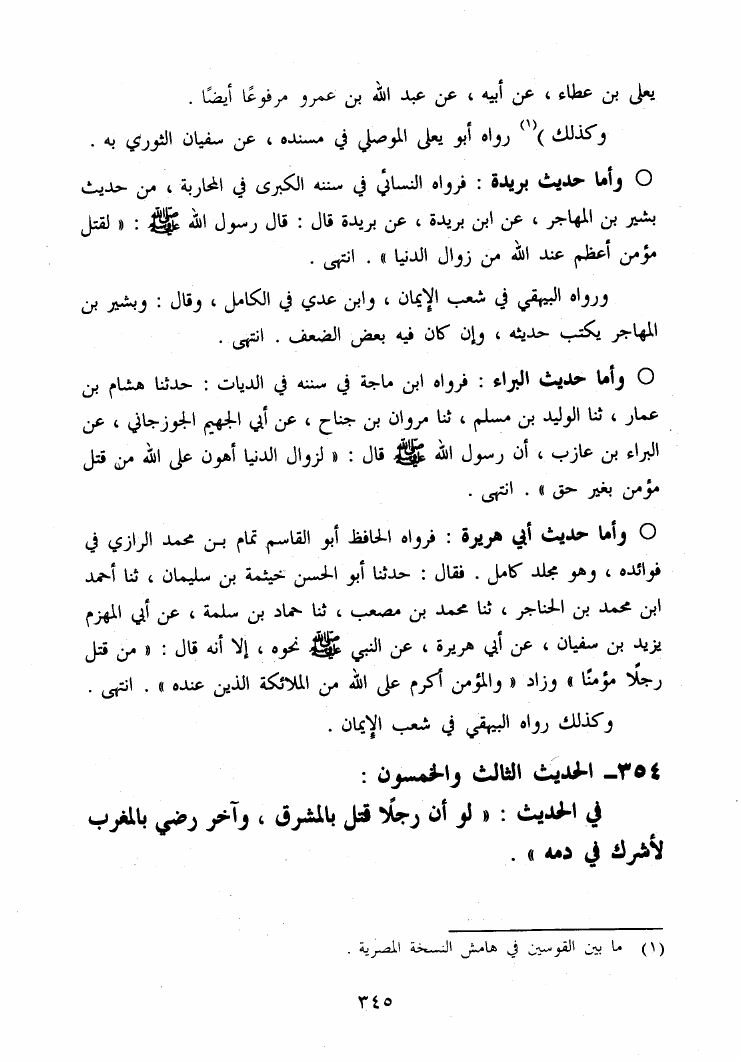 يعلى بن عطاء ، عن أبيه ، عن عبد الله بن عمرو مرفوعًا أيضًا .
وكذلك )(١) رواه أبو يعلى الموصلي في مسنده ، عن سفيان الثوري به .
○ وأما حديث بريدة : فرواه النسائي في سننه الكبرى في المحاربة ، من حديث
بشير بن المهاجر ، عن ابن بريدة ، عن بريدة قال : قال رسول الله ﷺ : « لقتل
مؤمن أعظم عند الله من زوال الدنيا » . انتهى .
ورواه البيهقي في شعب الإيمان ، وابن عدي في الكامل ، وقال : وبشير بن
المهاجر يكتب حديثه ، وإن كان فيه بعض الضعف . انتهى .
○ وأما حديث البراء : فرواه ابن ماجة في سننه في الديات : حدثنا هشام بن
عمار ، ثنا الوليد بن مسلم ، ثنا مروان بن جناح ، عن أبي الجهيم الجوزجاني ، عن
البراء بن عازب ، أن رسول الله ﷺ قال : « لزوال الدنيا أهون على الله من قتل
مؤمن بغير حق » . انتهى .
○ وأما حديث أبي هريرة : فرواه الحافظ أبو القاسم تمام بن محمد الرازي في
فوائده ، وهو مجلد كامل . فقال : حدثنا أبو الحسن خيثمة بن سليمان ، ثنا أحمد
ابن محمد بن الحناجر ، ثنا محمد بن مصعب ، ثنا حماد بن سلمة ، عن أبي المهزم
يزيد بن سفيان ، عن أبي هريرة ، عن النبي ﷺ نحوه ، إلا أنه قال : « من قتل
رجلًا مؤمنًا » وزاد « والمؤمن أكرم على الله من الملائكة الذين عنده » . انتهى .
وكذلك رواه البيهقي في شعب الإيمان .
٣٥٤ـ الحديث الثالث والخمسون :
في الحديث : « لو أن رجلًا قتل بالمشرق ، وآخر رضي بالمغرب
لأشرك في دمه » .
(١) ما بين القوسين في هامش النسخة المصرية .
٣٤٥